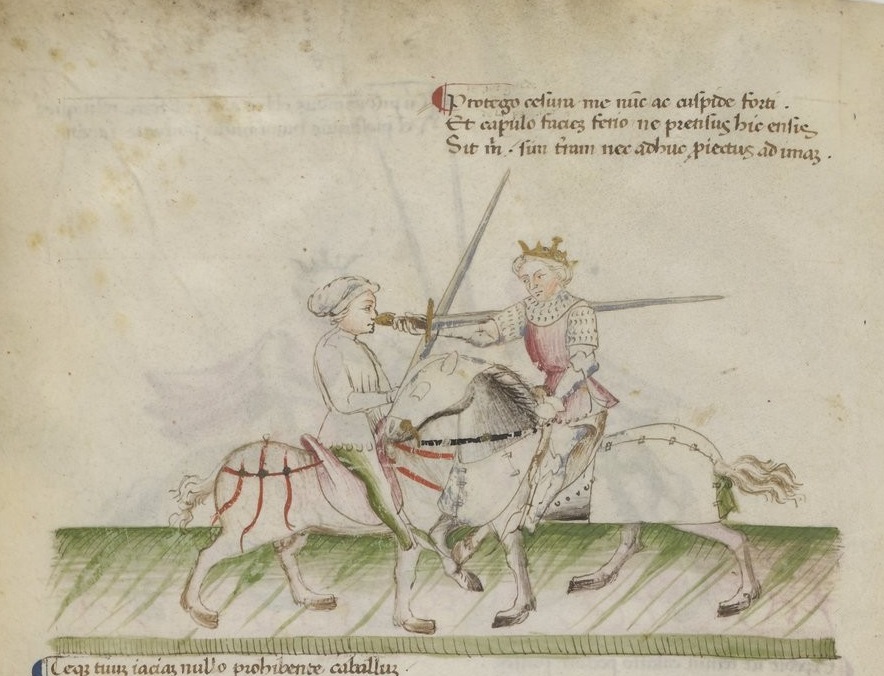 Protego cesura me nūc ac cuspide forti .
Et capulo faciē ferio ne pressus hic ensis
Sit m̄ . sim trām nec adhuc piectus ad imaȝ .
Teqȝ tuum iaciam nullo prohibente caballum .